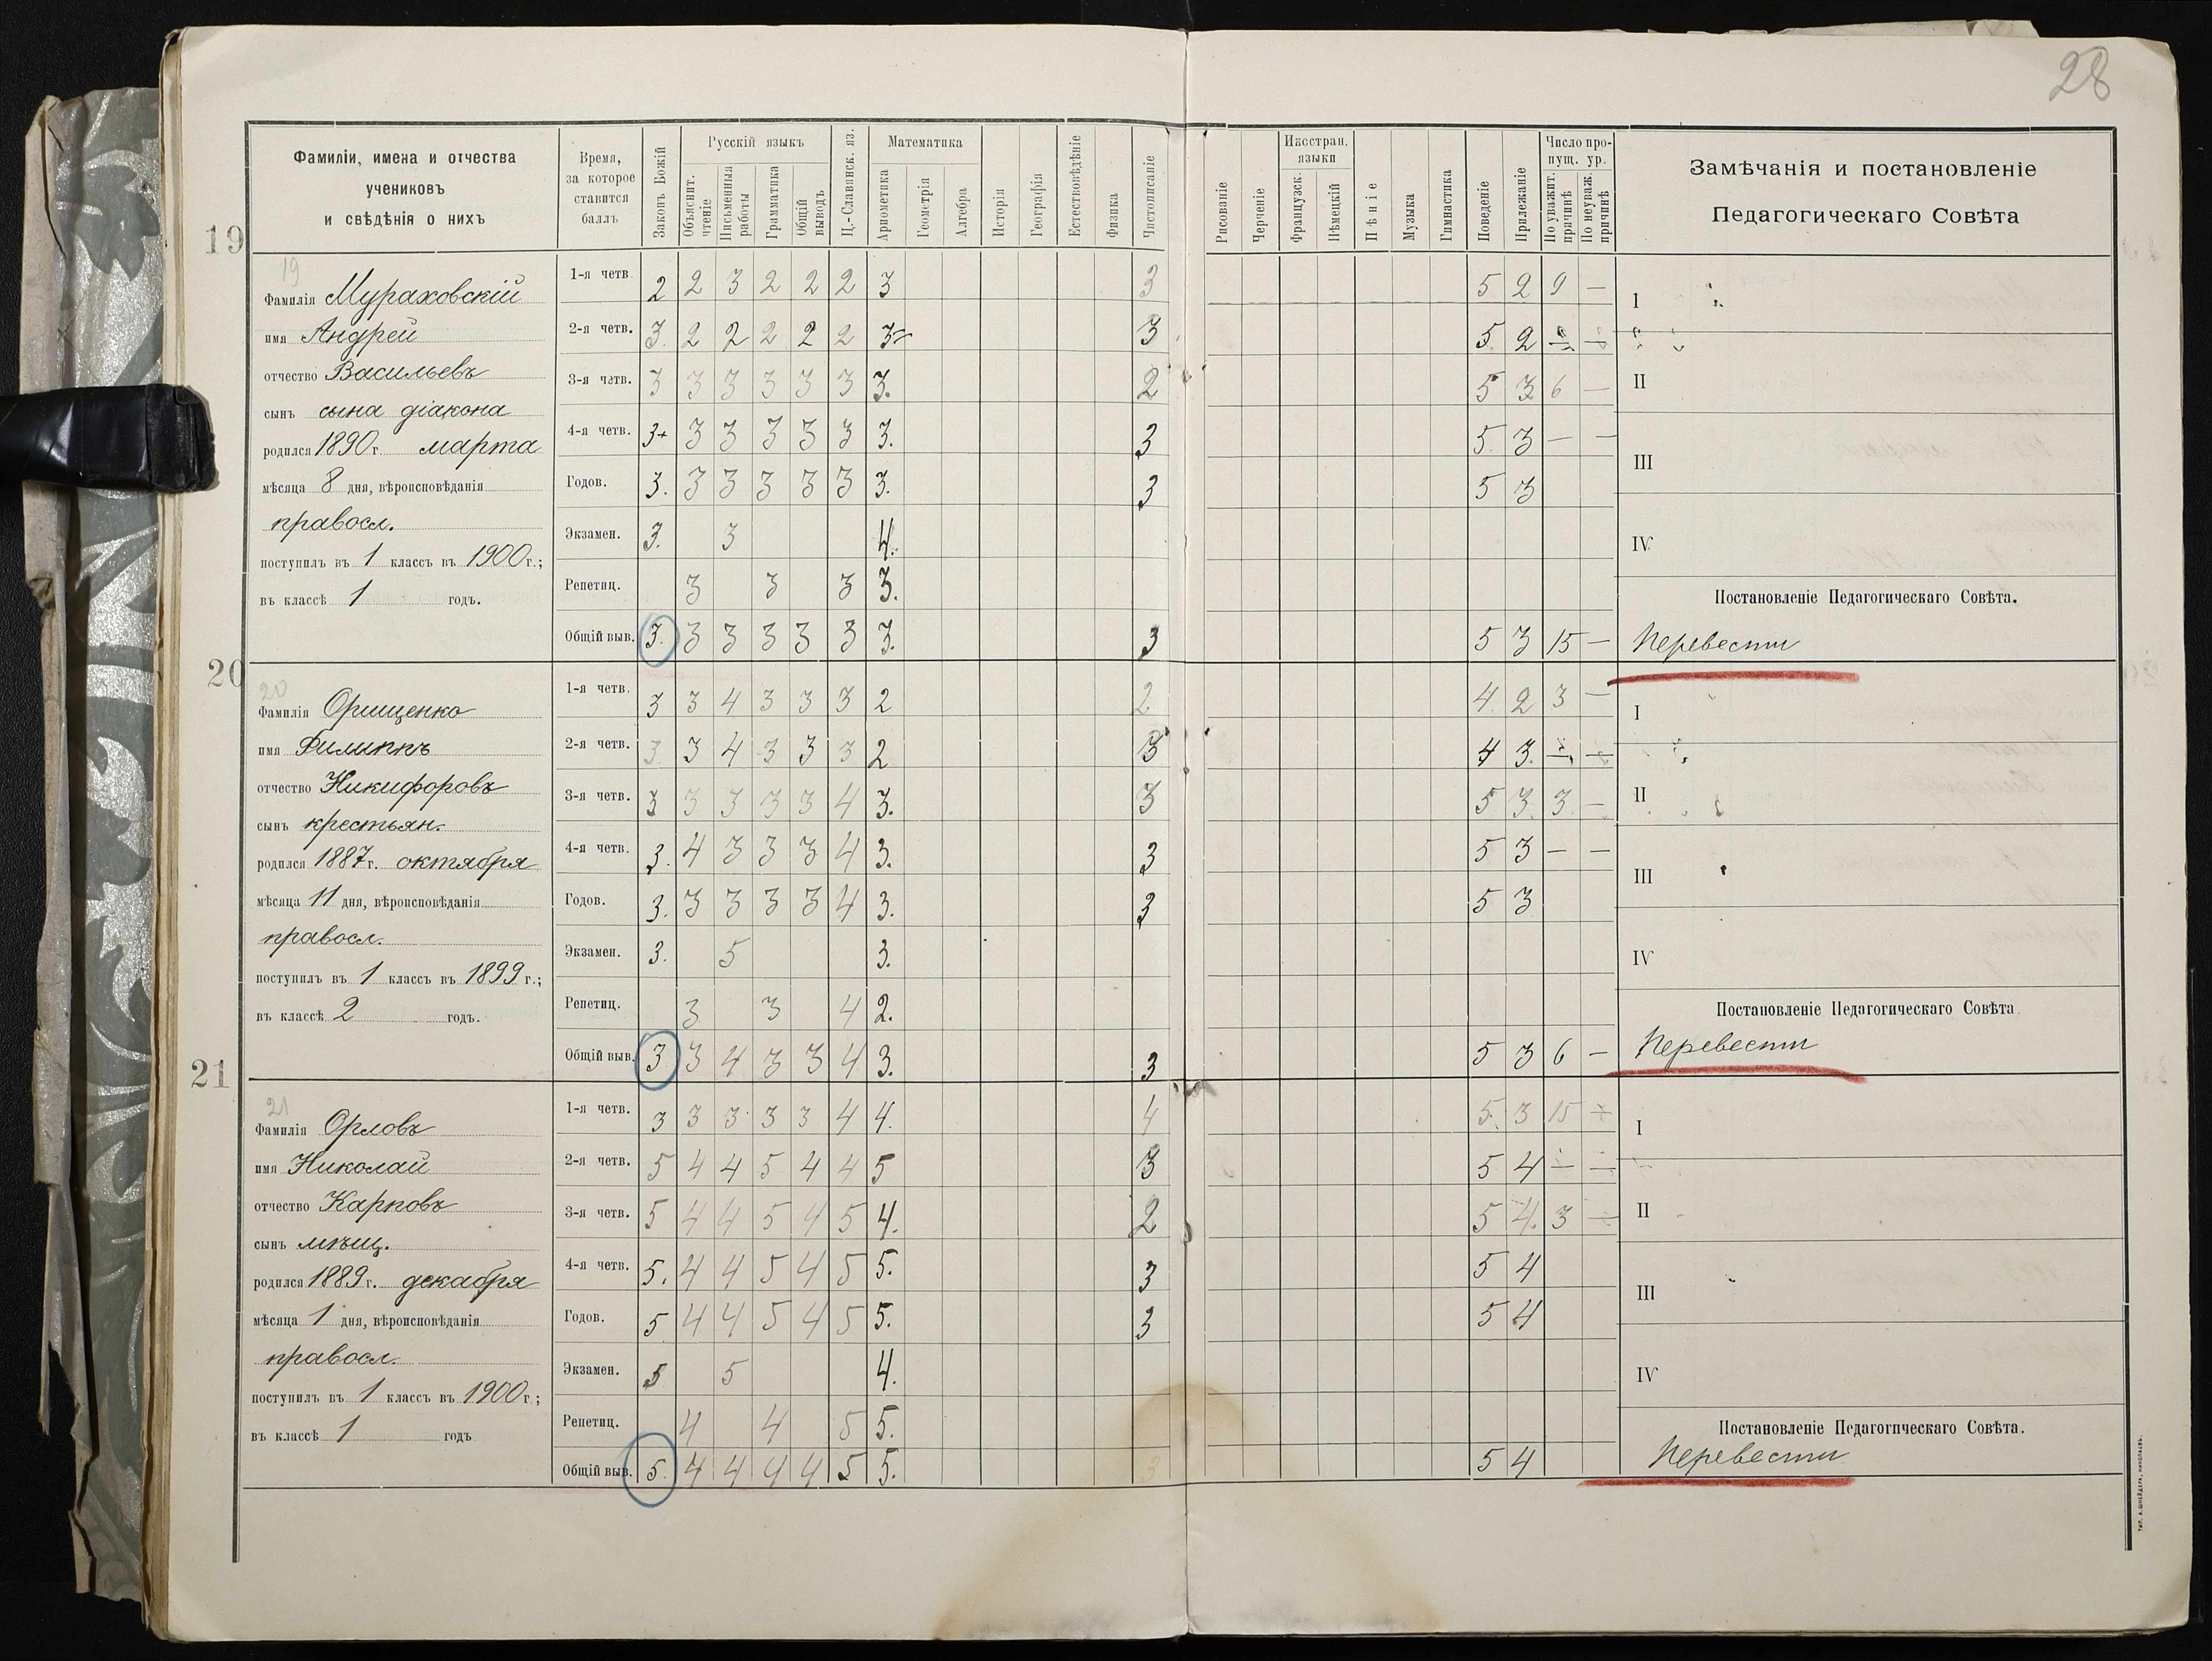 28
Фамиліи, имена и отчества
учениковъ
и свѣдѣнія о нихъ
Время,
за которое
ставится
баллъ
Законъ Божій
Русскій языкъ
Объяснит. чтеніе
Письменныя работы
Грамматика
Общій выводъ
Ц.-Славянск. яз.
Математика
Ариѳметика
Геометрія
Алгебра
Исторія
Географія
Естествовѣдѣніе
Физика
Чистописаніе
Рисованіе
Черченіе
Иностран. языки
Французск.
Нѣмецкій
Пѣніе
Музыка
Гимнастика
Поведеніе
Прилежаніе
Число пропущ. ур.
По уважит. причинѣ
По неуваж. причинѣ
Замѣчанія и постановленіе
Педагогическаго Совѣта
19
19
Фамилія Мураховскій
имя Андрей
отчество Васильевъ
сынъ сына діакона
родился 1890 г. марта
мѣсяца 8 дня, вѣроисповѣданія
правосл.
поступилъ въ 1 классъ въ 1900 г.;
въ классѣ 1 годъ.
1-я четв. 2 2 3 2 2 2 3 3 5 2 9 —
2-я четв. 3. 2 2 2 2 2 3= 3 5. 2
3-я четв. 3 3 3 3 3 3 3. 2 5 3 6 —
4-я четв. 3+ 3 3 3 3 3 3. 3 5. 3 — —
Годов. 3. 3 3 3 3 3 3. 3 5 3
Экзамен. 3. 3 4.
Репетиц. 3 3 3 3.
Общій выв. 3. 3 3 3 3 3 3. 3 5 3 15 —
I
II
III
IV
Постановленіе Педагогическаго Совѣта.
Перевести
20
20
Фамилія Орищенко
имя Филиппъ
отчество Никифоровъ
сынъ крестьян.
родился 1887 г. октября
мѣсяца 11 дня, вѣроисповѣданія
правосл.
поступилъ въ 1 классъ въ 1899 г.;
въ классѣ 2 годъ.
1-я четв. 3 3 4 3 3 3 2 2 4. 2 3 —
2-я четв. 3 3 4 3 3 3 2 3 4 3.
3-я четв. 3 3 3 3 3 4 3. 3 5 3. 3 —
4-я четв. 3. 4 3 3 3 4 3. 3 5 3 — —
Годов. 3. 3 3 3 3 4 3. 3 5 3
Экзамен. 3. 5 3.
Репетиц. 3 3 4 2.
Общій выв. 3 3 4 3 3 4 3. 3 5 3 6 —
I
II
III
IV
Постановленіе Педагогическаго Совѣта
Перевести
21
21
Фамилія Орловъ
имя Николай
отчество Карповъ
сынъ мѣщ.
родился 1889 г. декабря
мѣсяца 1 дня, вѣроисповѣданія
правосл.
поступилъ въ 1 классъ въ 1900 г.;
въ классѣ 1 годъ
1-я четв. 3 3 3 3 3 4 4. 4 5. 3 15
2-я четв. 5 4 4 5 4 4 5 3 5 4 — —
3-я четв. 5 4 4 5 4 5 4. 2 5 4. 3 —
4-я четв. 5. 4 4 5 4 5 5. 3 5 4
Годов. 5 4 4 5 4 5 5. 3 5 4
Экзамен. 5 5 4.
Репетиц. 4 4 5 5.
Общій выв. 5. 4 4 4 4 5 5. 3 5 4
I
II
III
IV
Постановленіе Педагогическаго Совѣта.
Перевести
ТИП. А. ШНЕЙДЕРА, НИКОЛАЕВЪ.